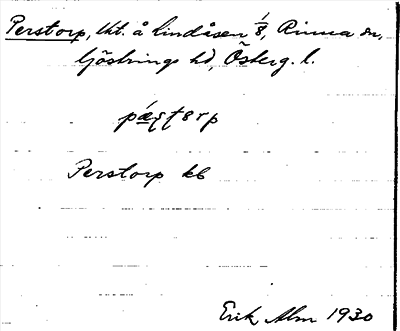 Perstorp, lht. å Lindåsen 1/8, Rinna sn,
Göstrings hd, Österg. l.
pǽʂʈɛrp
Perstorp kb
Erik Alm 1930